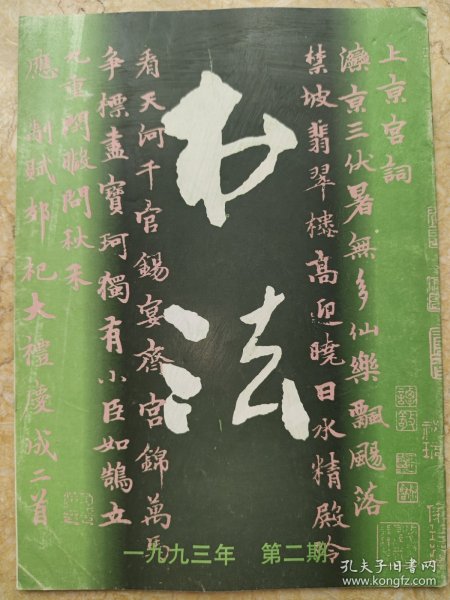 书法
上京宫詞
灤京三伏暑無多仙樂飄颺落
禁坡翡翠樓高迎曉日水精殿冷
看天河千官錫宴齊宮錦萬馬
争標盡寶珂獨有小臣如鵠立
九重閶闔問秋禾
應制賦郊祀大禮慶成二首
一九九三年 第二期
孔夫子旧书网
kongfz.com